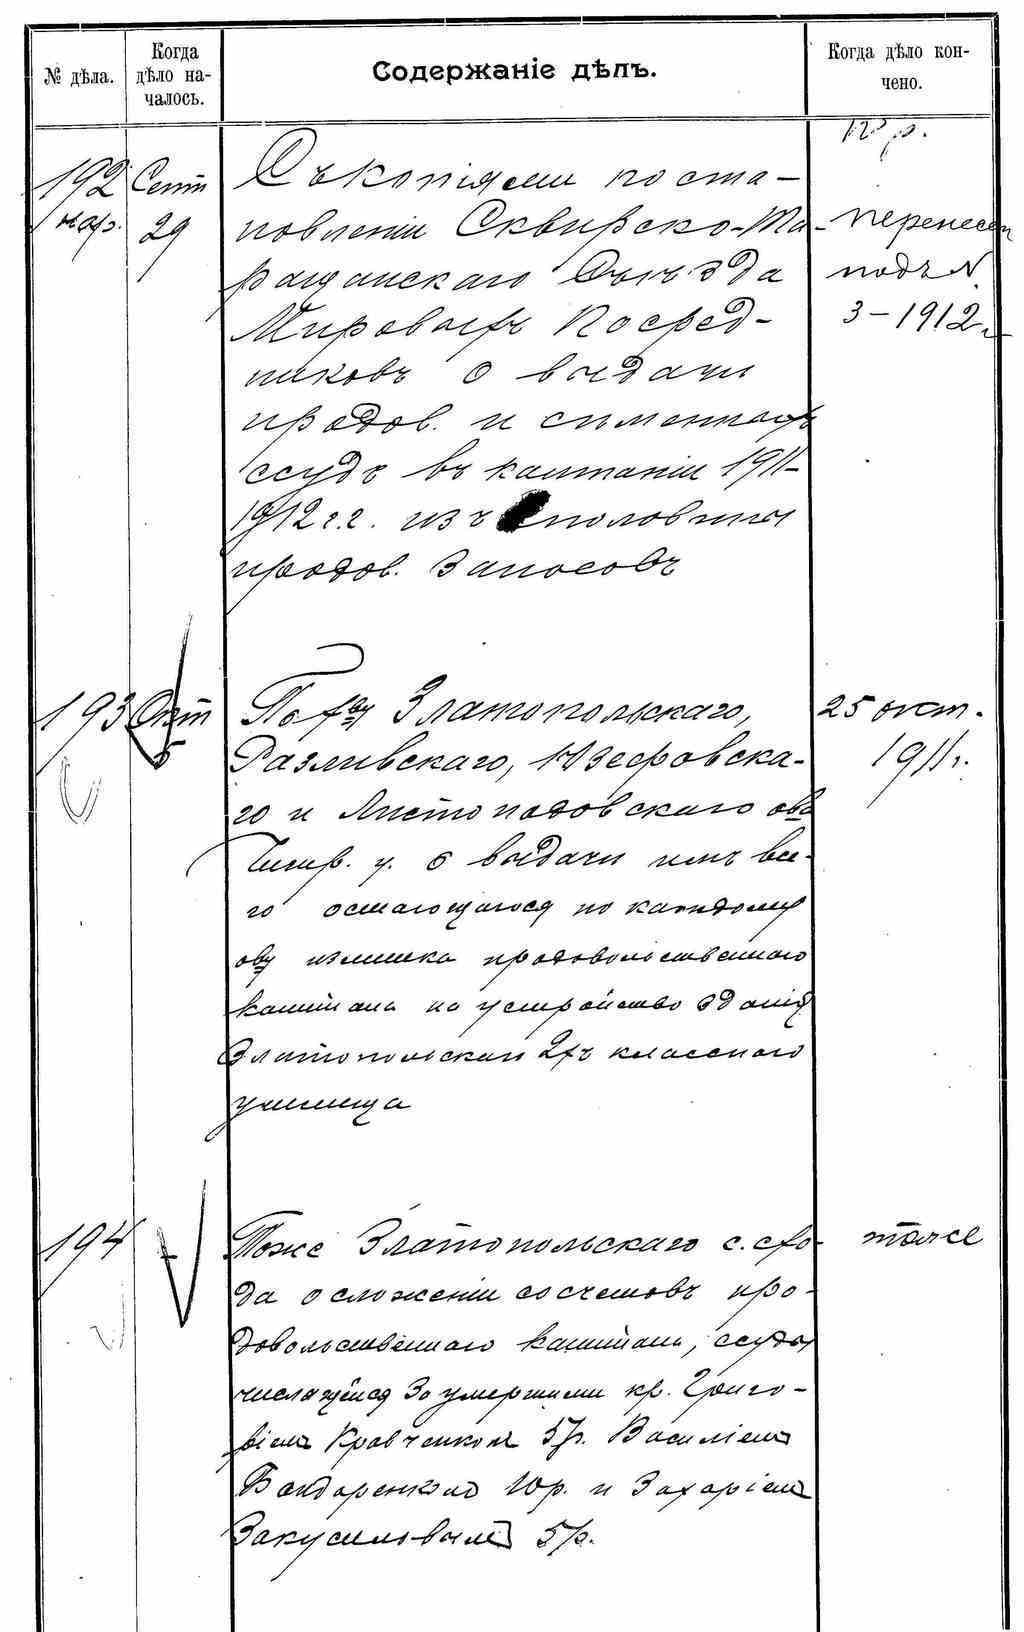 № дѣла.
Когда дѣло началось.
Содержаніе дѣлъ.
Когда дѣло кончено.
192
Сент
29
Съ копіями поста-
новленій Сквирско-Та-
ращанскаго Съѣзда
Мировыхъ Посред-
никовъ о выдачи
продов. и сименныхъ
ссудъ въ кампаніи 1911-
1912 г.г. изъ половины
продов. запасовъ
перенесен
подъ №
3-1912 г.
193
Окт
5
По х-ву Златопольскаго,
Разливскаго, Юзефовска-
го и Листоподовскаго об-въ
Чигир. у. о выдачи имъ все-
го остающагося по каждому
об-ву излишка продовольственнаго
капитала на устройство зданія
Златопольскаго 2х класснаго
училища
25 окт.
1911 г.
194
Тоже Златопольскаго с. схо-
да о сложеніи со счетовъ про-
довольственнаго капитала, ссуды
числящейся за умершими кр. Григо-
ріемъ Кравченкомъ 5 р. Василіемъ
Бондаренкомъ 10 р. и Захаріемъ
Закусиловымъ 5 р.
тоже